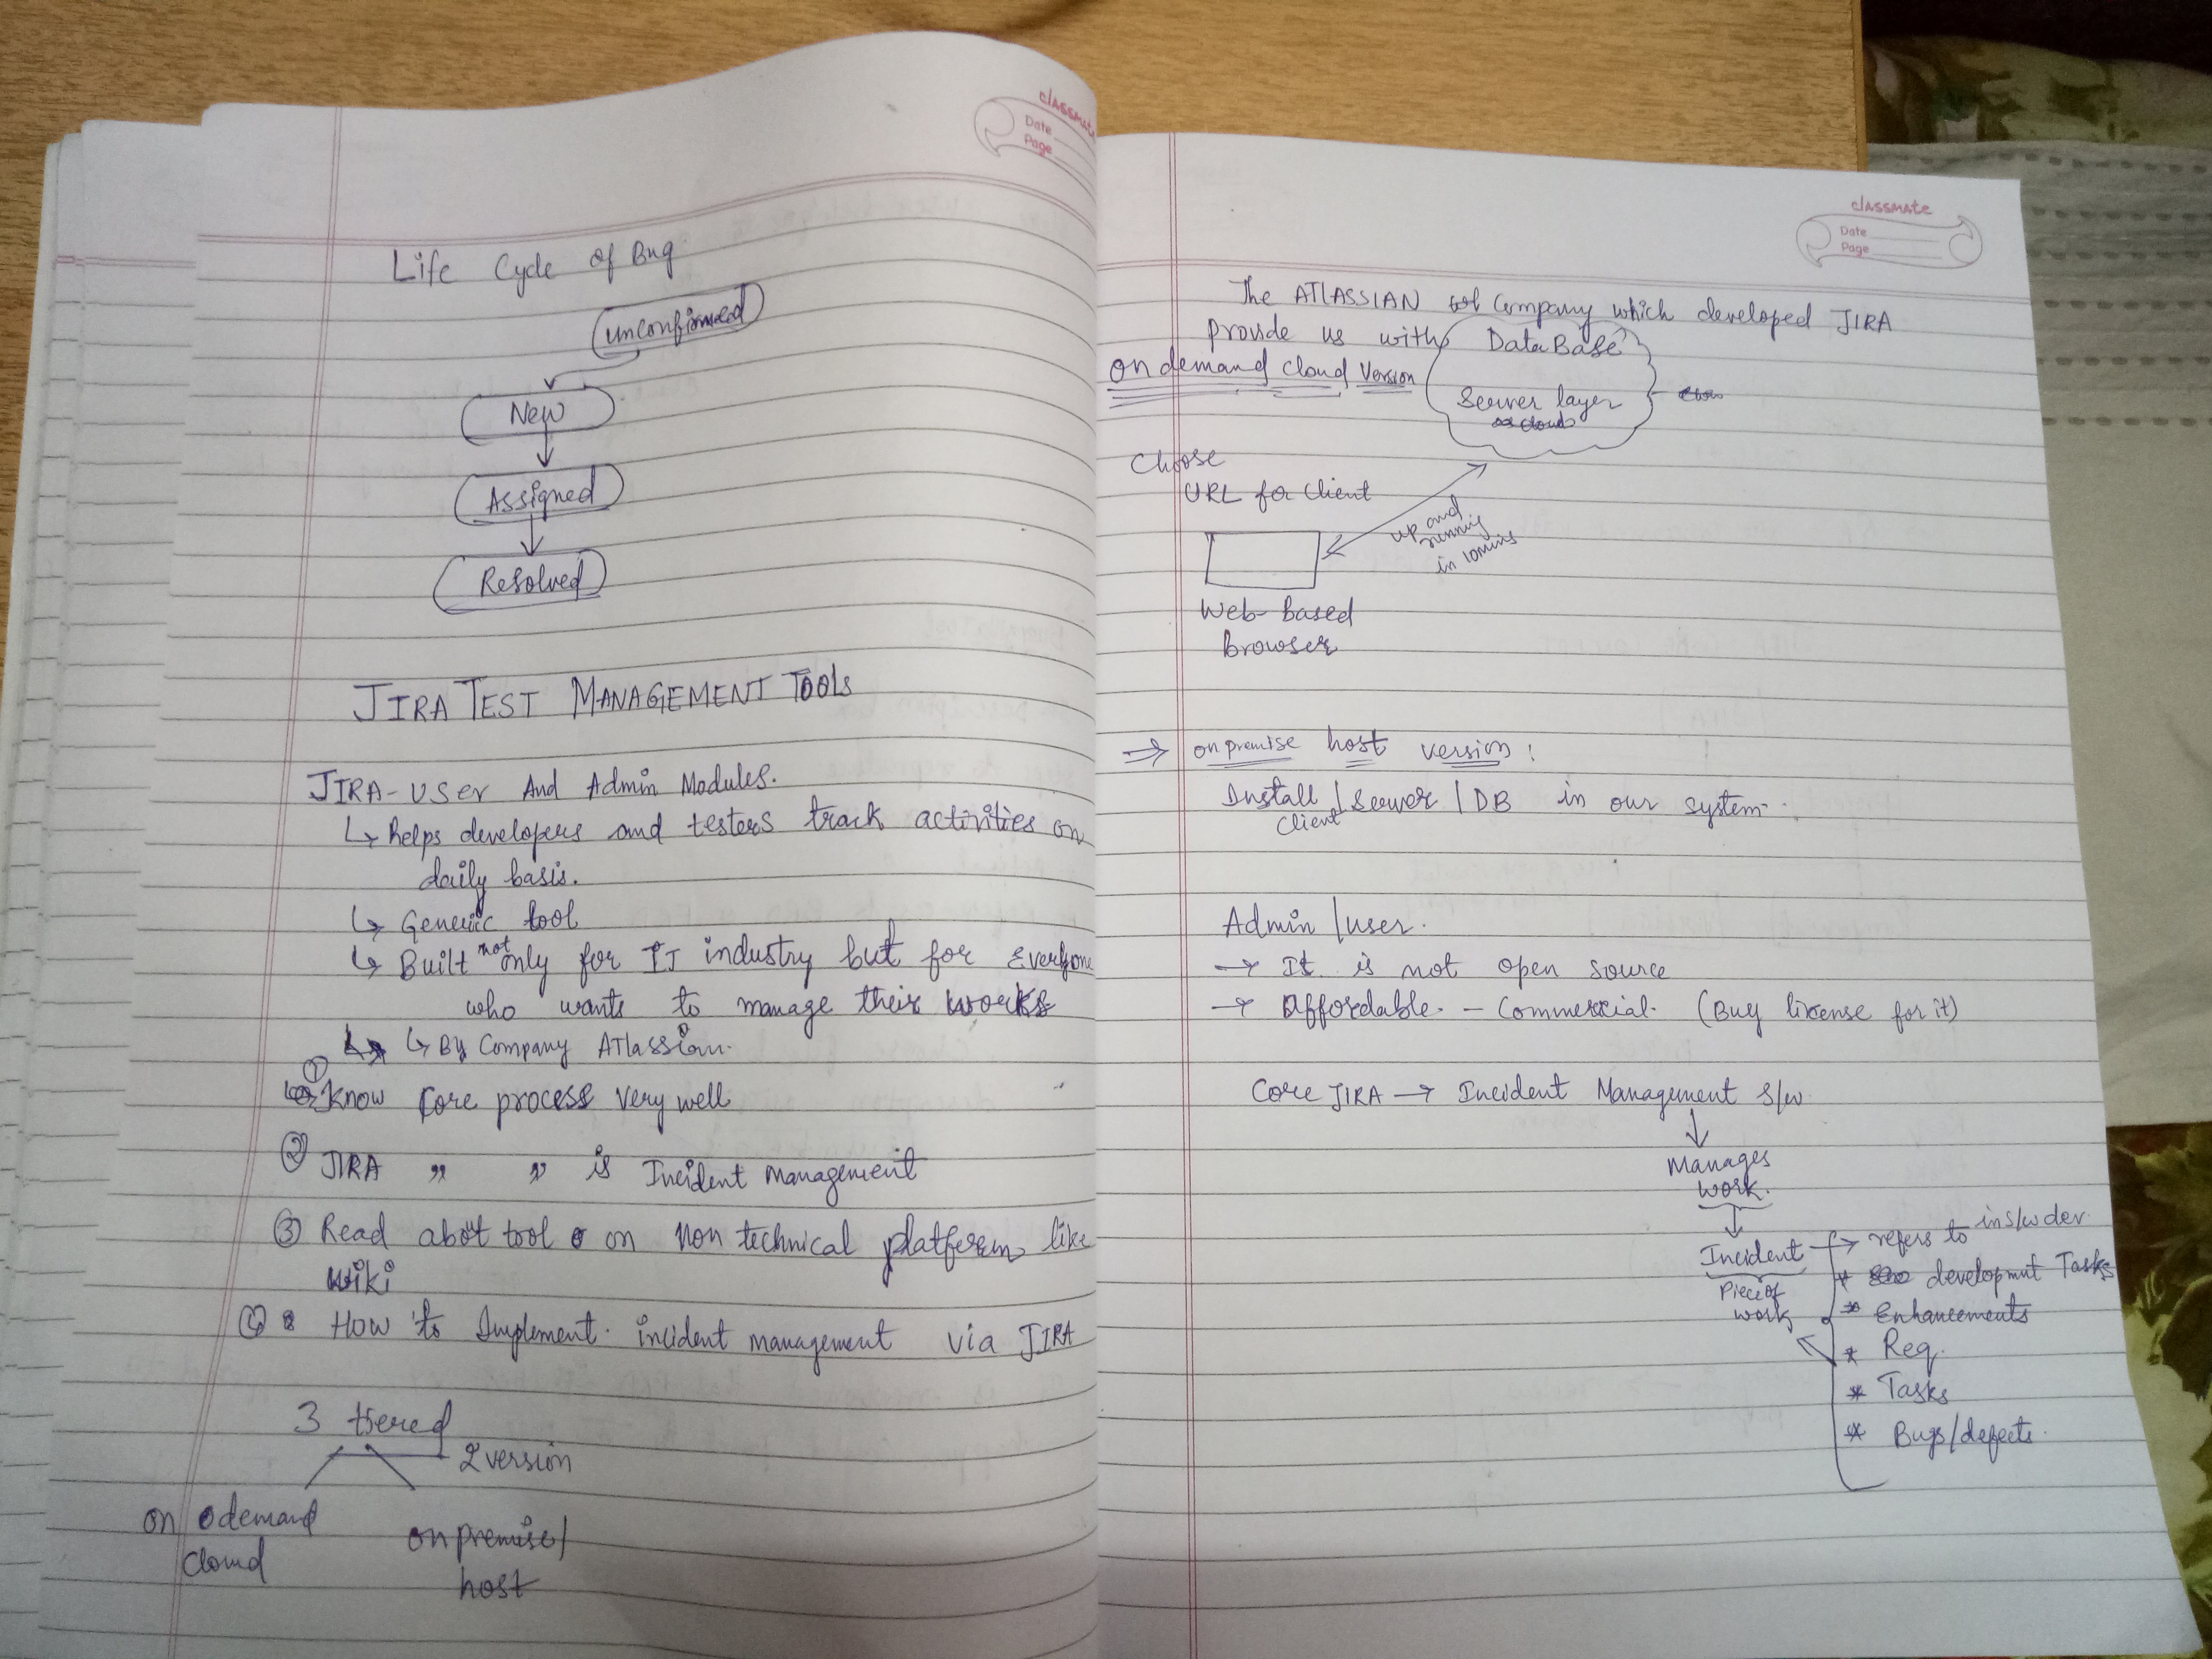 classmate
Date
Page
Life Cycle of Bug
unconfirmed
New
Assigned
Resolved
JIRA TEST MANAGEMENT TOOLS
JIRA - User And Admin Modules.
↳ helps developers and testers track activities on
daily basis.
↳ Generic tool
↳ Built not only for IT industry but for Everyone
who wants to manage their works
↳ By Company Atlassian.
① Know Core process very well
② JIRA " " is Incident management
③ Read about tool on Non technical platform like
Wiki
④ How to Implement incident management via JIRA
3 tiered
2 version
on demand
cloud
on premise/
host
classmate
Date
Page
The ATLASSIAN Company which developed JIRA
provide us with DataBase
on demand cloud version
Server layer
Choose
URL for client
up and
running
in 10mins
Web-based
browser
⇒ on premise host version :
Install / Server / DB in our system.
Client
Admin / user.
→ It is not open source
→ Affordable. - Commercial. (Buy license for it)
Core JIRA → Incident Management s/w
↓
Manages
work.
↓
Incident → refers to in s/w dev.
Piece of
work
* developmnt Tasks
* Enhancements
* Req.
* Tasks
* Bugs/defects.